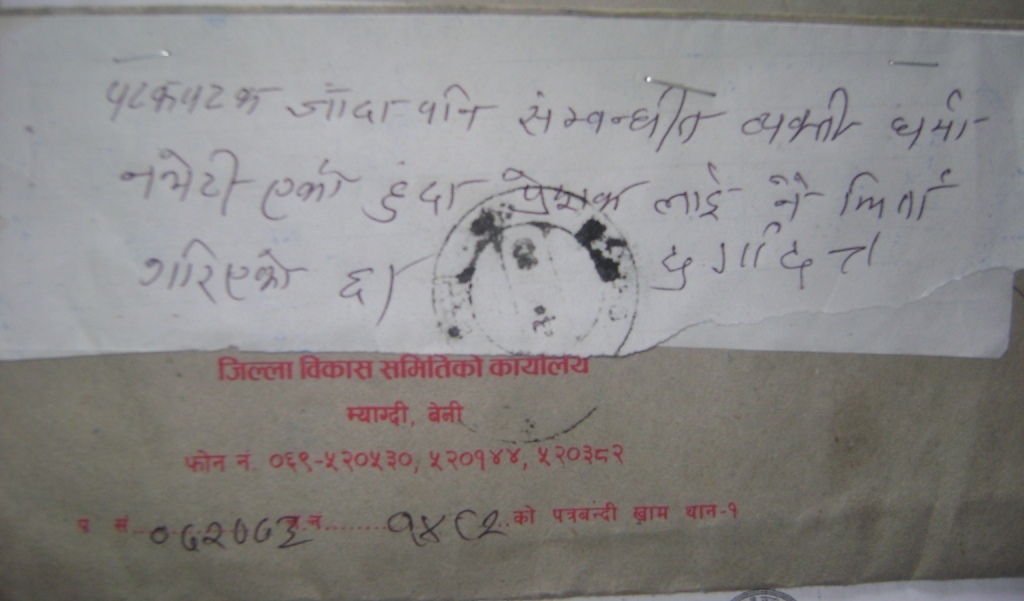 पटकपटक जाँदा पनि संम्वन्धीत व्यक्ती घर्मा
नभेटी एको हुंदा प्रेषक लाई नै फिर्ता
गरिएको छ। दुर्गादित्त
जिल्ला विकास समितिको कार्यालय
म्याग्दी, बेनी
फोन नं. ०६९-५२०५३०, ५२०१४४, ५२०३८२
प सं. च.नं. को पत्रबन्दी खाम थान-१